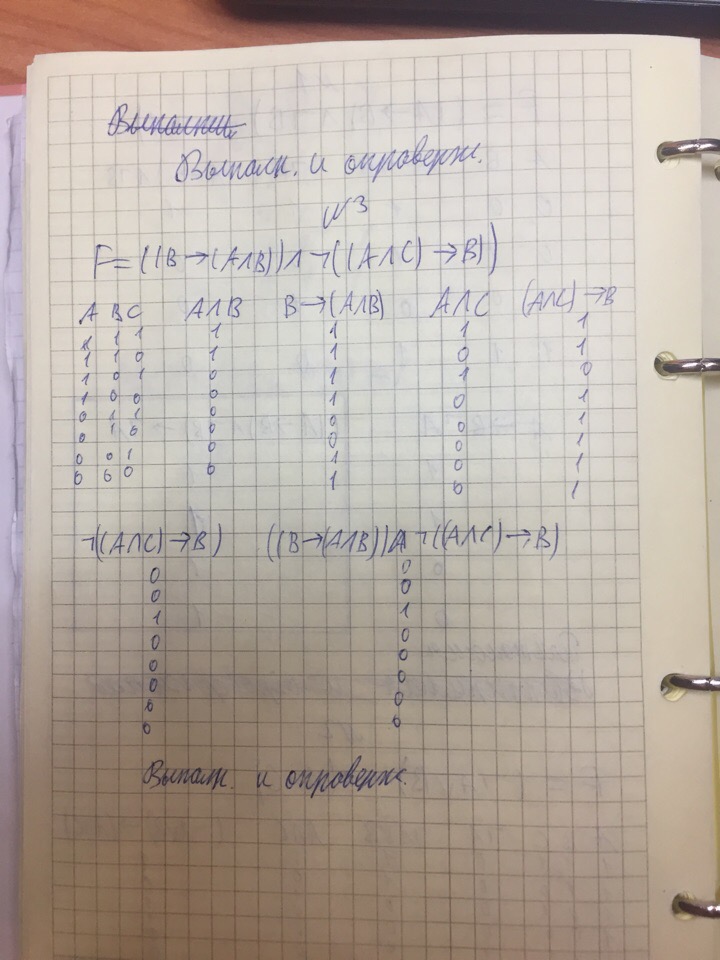 Выполни.
Выполн. и опроверж.
№3
F=((B→(A∧B))∧¬((A∧C)→B))
A B C A∧B B→(A∧B) A∧C (A∧C)→B
1 1 1 1 1 1 1
1 1 0 1 1 0 1
1 0 1 0 1 1 0
1 0 0 0 1 0 1
0 1 1 0 0 0 1
0 1 0 0 0 0 1
0 0 1 0 1 0 1
0 0 0 0 1 0 1
¬((A∧C)→B) ((B→(A∧B))∧¬((A∧C)→B)
0 0
0 0
1 1
0 0
0 0
0 0
0 0
0 0
Выполн. и опроверж.